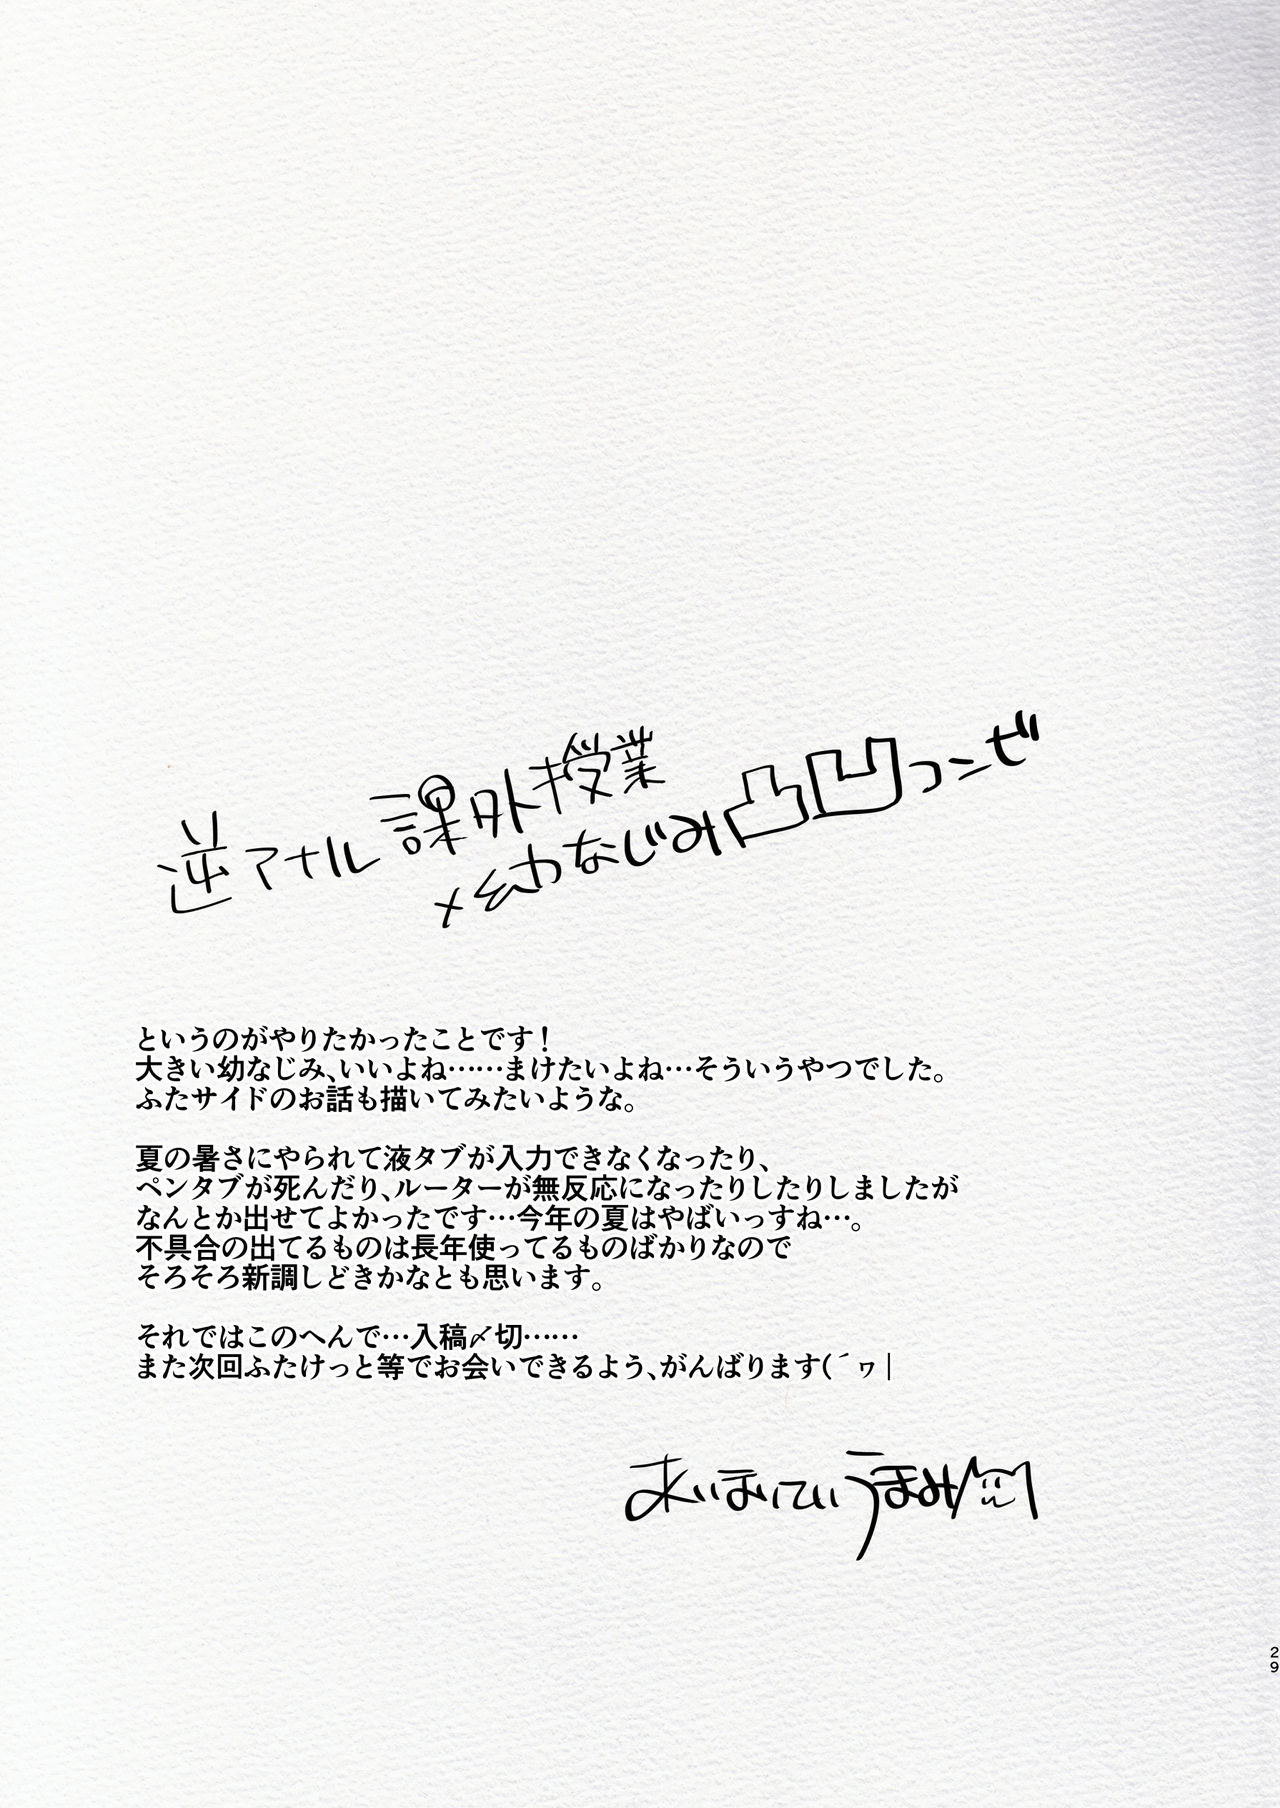 逆アナル課外授業
×幼なじみ凸凹コンビ
というのがやりたかったことです!
大きい幼なじみ、いいよね……まけたいよね…そういうやつでした。
ふたサイドのお話も描いてみたいような。
夏の暑さにやられて液タブが入力できなくなったり、
ペンタブが死んだり、ルーターが無反応になったりしたりしましたが
なんとか出せてよかったです…今年の夏はやばいっすね…。
不具合の出てるものは長年使ってるものばかりなので
そろそろ新調しどきかなとも思います。
それではこのへんで…入稿〆切……
また次回ふたけっと等でお会いできるよう、がんばります(´ヮ|
あいほいてぃうまみ
29